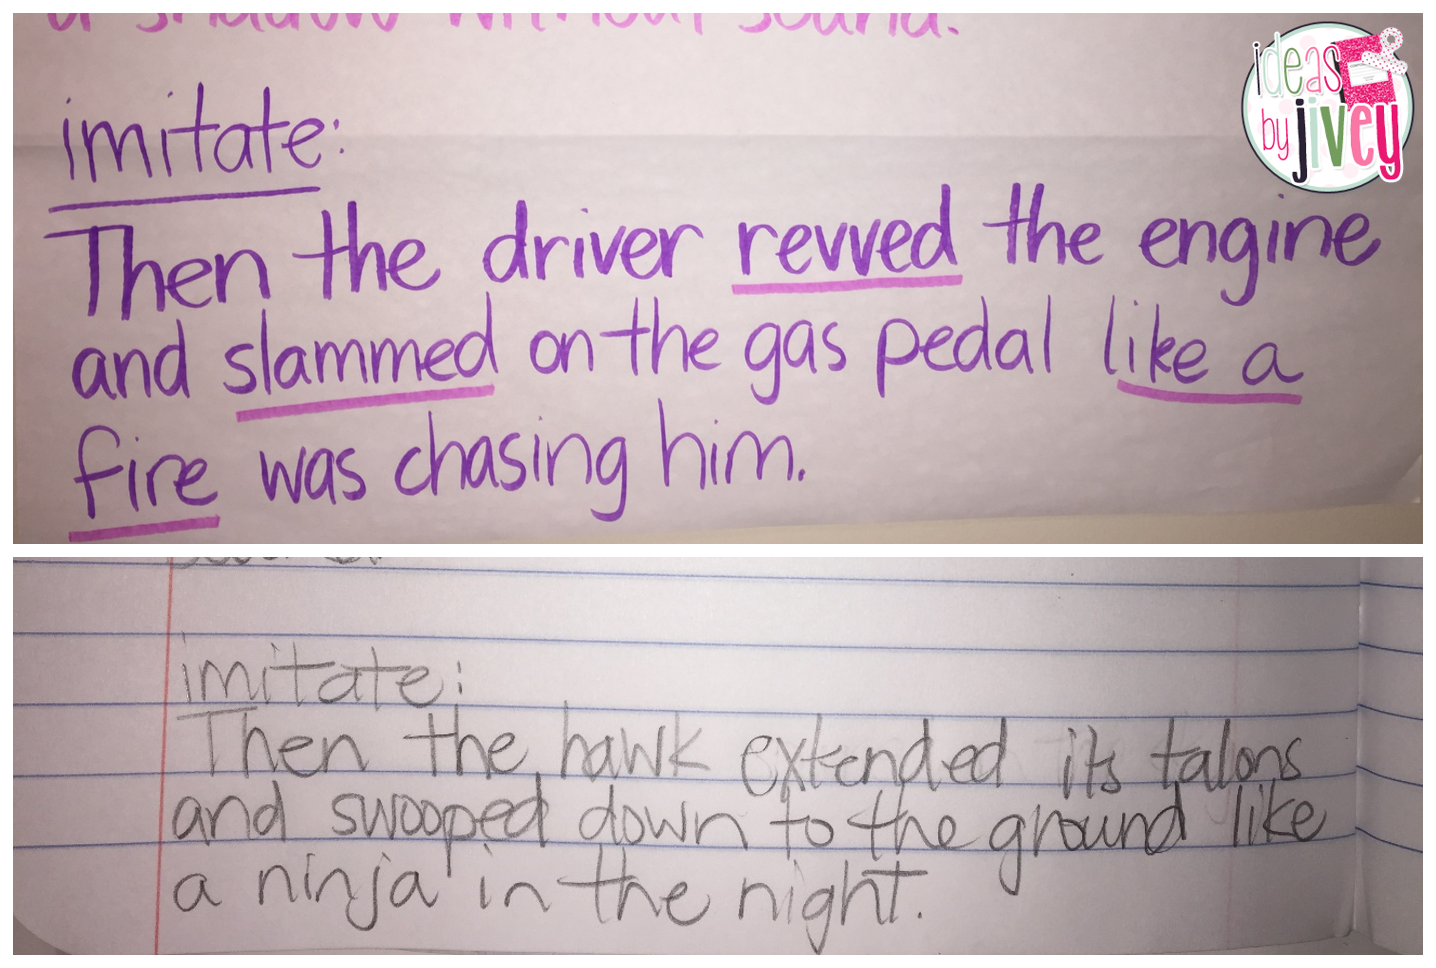 or shadow without sound.
ideas
by jivey
imitate:
Then the driver revved the engine
and slammed on the gas pedal like a
fire was chasing him.
imitate:
Then the hawk extended its talons
and swooped down to the ground like
a ninja in the night.